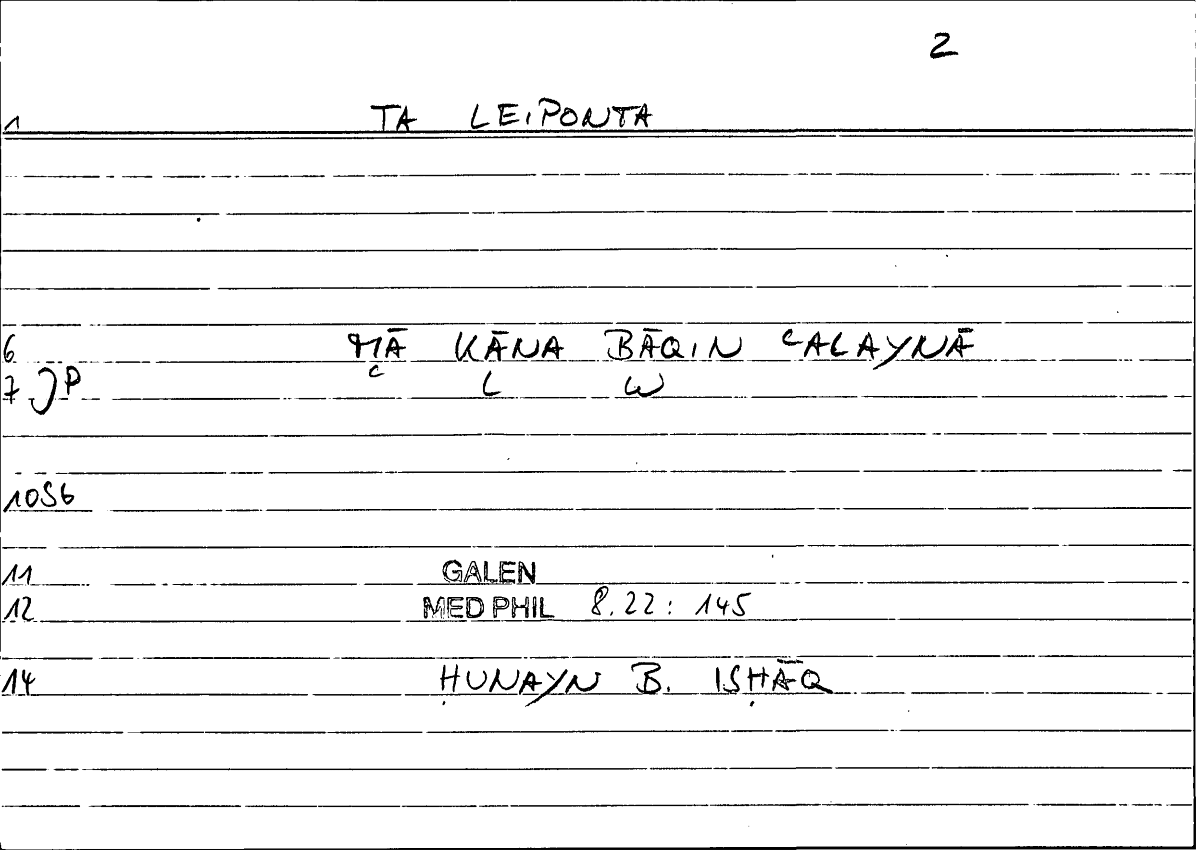 2
1 TA LEIPONTA
6 MĀ KĀNA BĀQIN ʿALAYNĀ
7 JP C L W
10 S6
11 GALEN
12 MED PHIL 8.22: 145
14 ḤUNAYN B. ISḤĀQ